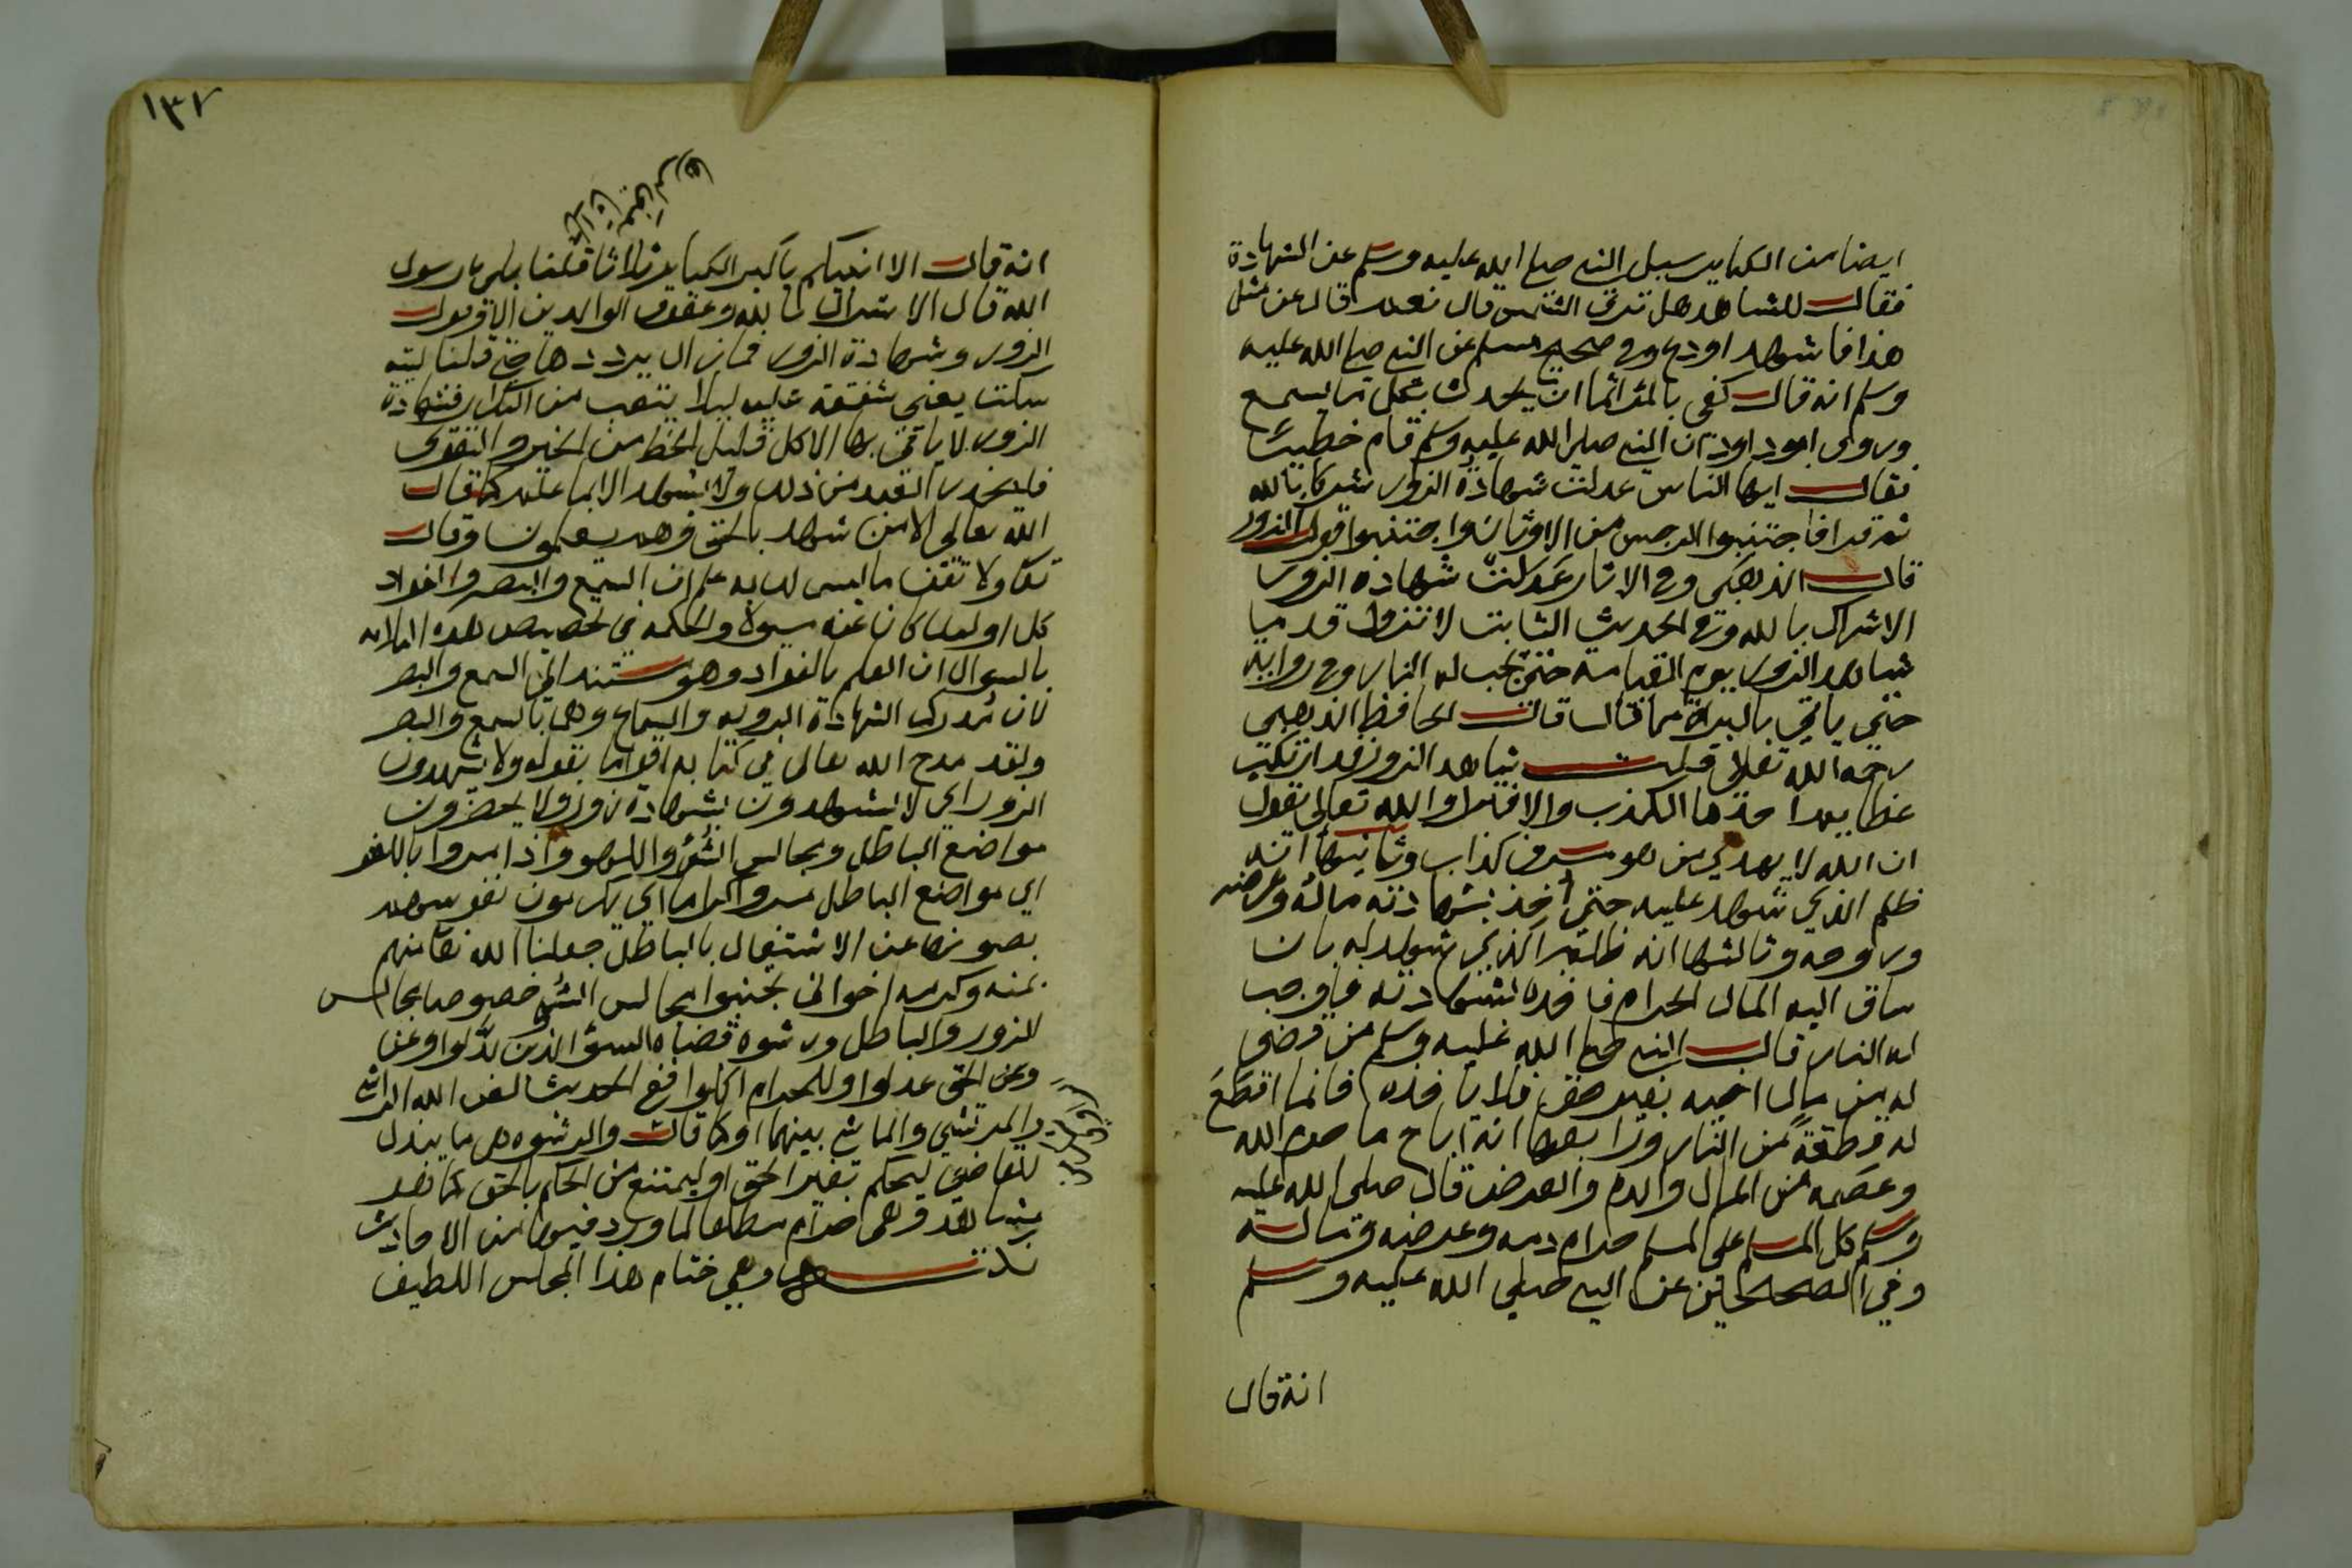 ايضا من الكباير سيل النبي صلي الله عليه وسلم عن الشهادة
فقال للشاهد هل ترى الشمس قال نعم قال عن مثل
هذا فاشهد اودع وفي صحيح مسلم عن النبي صلي الله عليه
وسلم انه قال كفى بالمرء اثما ان يحدث بكل ما يسمع
وروى ابو داود ان النبي صلي الله عليه وسلم قام خطيبا
فقال ايها الناس عدلت شهادة الزور شركا بالله
ثم قرا فاجتنبوا الرجس من الاوثان واجتنبوا قول الزور
قال الذهبي وفي الاثار عدلت شهادة الزور
الاشراك بالله وفي الحديث الثابت لا تزول قدميا
شاهد الزور يوم القيامة حتى تجب له النار وفي رواية
حتى ياتي بالبراة مما قال قال الحافظ الذهبي
رحمه الله تعالى قلت شاهد الزور قد ارتكب
عظايم احدها الكذب والافترا والله تعالى يقول
ان الله لا يهدي من هو مسرف كذاب وثانيها انه
ظلم الذي شهد عليه حتى اخذ بشهادته ماله وعرضه
وروحه وثالثها انه ظلم الذي شهد له بان
ساق اليه المال الحرام فاخذه بشهادته فاوجب
له النار قال النبي صلي الله عليه وسلم من قضي
له من مال اخيه بغير حق فلا ياخذه فانما اقطع
له قطعة من النار ورابعها انه اباح ما حرم الله
وعصمه من المال والدم والعرض قال صلي الله عليه
وسلم كل المسلم على المسلم حرام دمه وعرضه وماله
وفي الصحيحين عن النبي صلي الله عليه وسلم
انه قال
١٣٢
انه قال الا انبيكم باكبر الكباير ثلاثا قلنا بلى يا رسول
الله قال الاشراك بالله وعقوق الوالدين الا وقول
الزور وشهادة الزور فما زال يرددها حتى قلنا ليته
سكت يعني شفقة عليه ليلا يتعب من التكرار فشهادة
الزور لا ياتي بها الا كل قليل الحظ من الخير والتقوى
فليحذر العبد من ذلك ولا يشهد الا بما علم كما قال
الله تعالى الا من شهد بالحق وهم يعلمون وقال
تعالى ولا تقف ما ليس لك به علم ان السمع والبصر والفواد
كل اوليك كان عنه مسيولا والحكمة في تخصيص هذه الثلاثه
بالسوال ان العلم بالفواد وهو مستند الي السمع والبصر
لان مدرك الشهادة الرويه والسماع وهما بالسمع والبصر
ولقد مدح الله تعالى في كتابه اقواما بقوله ولا يشهدون
الزور اي لا يشهدون بشهادة زور ولا يحضرون
مواضع الباطل ومجالس السوء واللهو واذا مروا باللغو
اي مواضع الباطل مروا كراما اي يكرمون نفوسهم
بصونها عن الاشتغال بالباطل جعلنا الله تعا منهم
بمنه وكرمه اخواني تجنبوا مجالس السوء خصوصا مجالس
الزور والباطل ورشوه قضاة السوء الذين بدلوا وعن
وعن الحق عدلوا وللحرام اكلوا ففي الحديث لعن الله الراشي
والمرتشي والماشي بينهما او كما قال والرشوه هي ما يبذل
للقاضي ليحكم بغير الحق او ليمتنع من الحكم بالحق كما
وهي حرام مطلقا لما ورد فيها من الاحاديث
وهي ختام هذا المجلس اللطيف